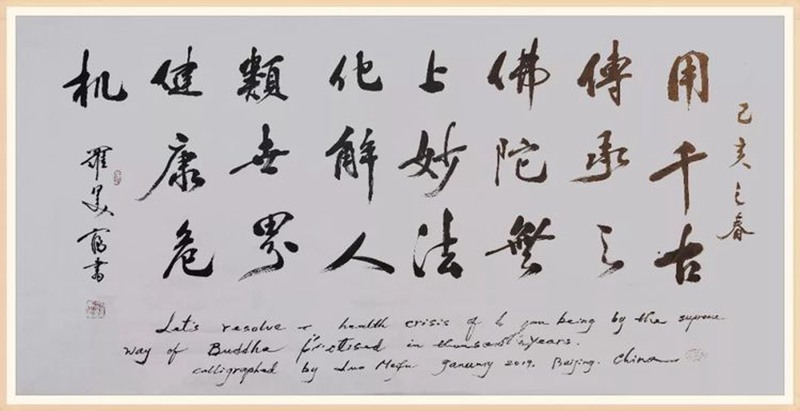 己亥之春
用千古
傳承之
佛陀無
上妙法
化解人
類世界
健康危
机
羅美富書
Let's resolve health crisis of being by the supreme
way of Buddha in years.
calligraphed by Luo Meifu January 2019. Beijing. China